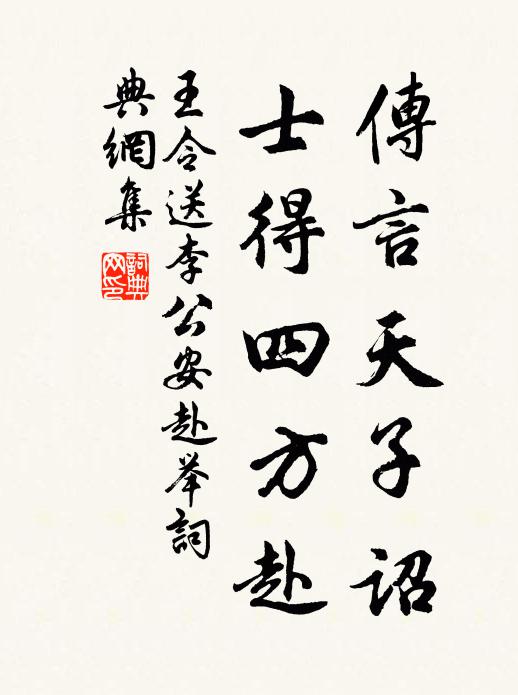 傳言天子詔
士得四方赴
王令送李公安赴举詞
典網集
詞典
网印